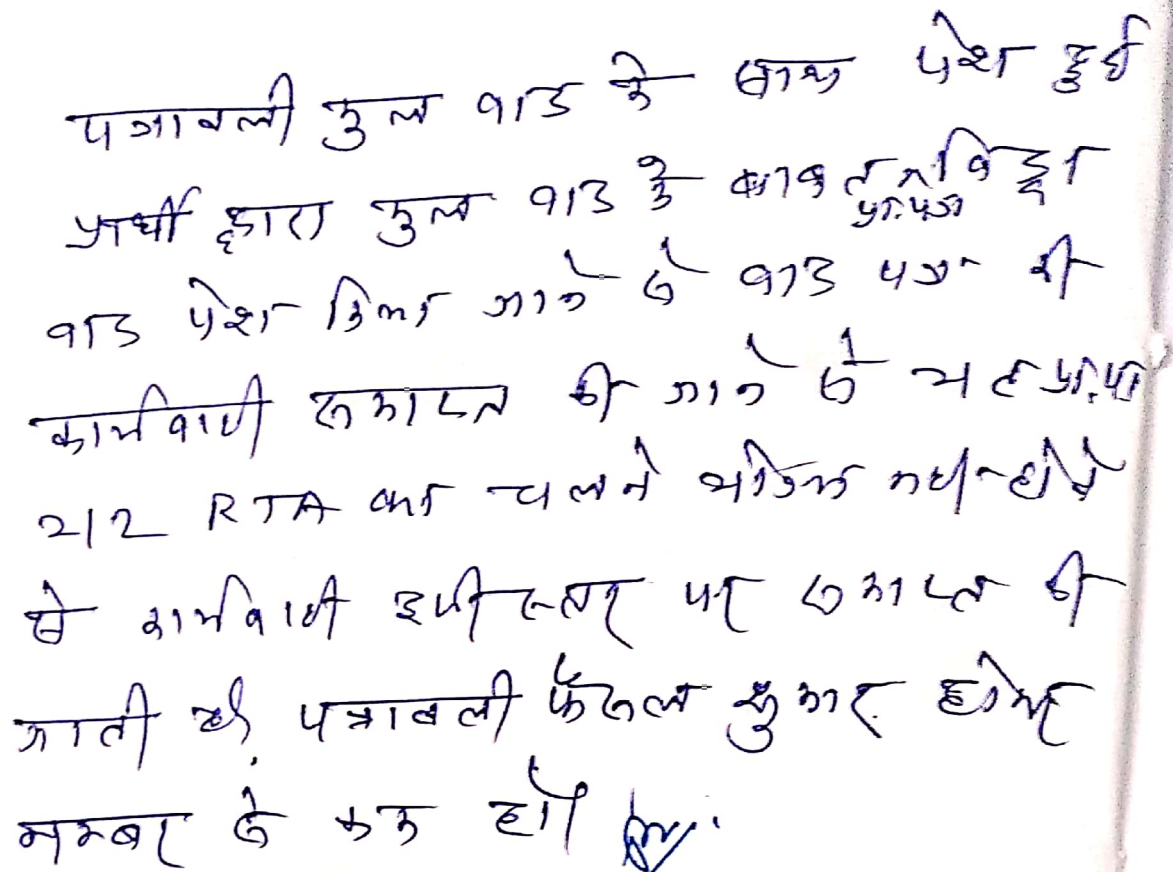 पत्रावली मुल वाद के साथ पेश हुई
प्रार्थी द्वारा मुल वाद के बाबत प्रा.पत्र विड्रा
वाद पेश किया जाने से वाद पत्र की
कार्यवाही समाप्त की जाने से यह प्रा.पत्र
212 RTA का चलने योग्य नहीं होने
से कार्यवाही इसी स्तर पर समाप्त की
जाती है, पत्रावली फैसल शुमार होकर
नम्बर से कम हो।